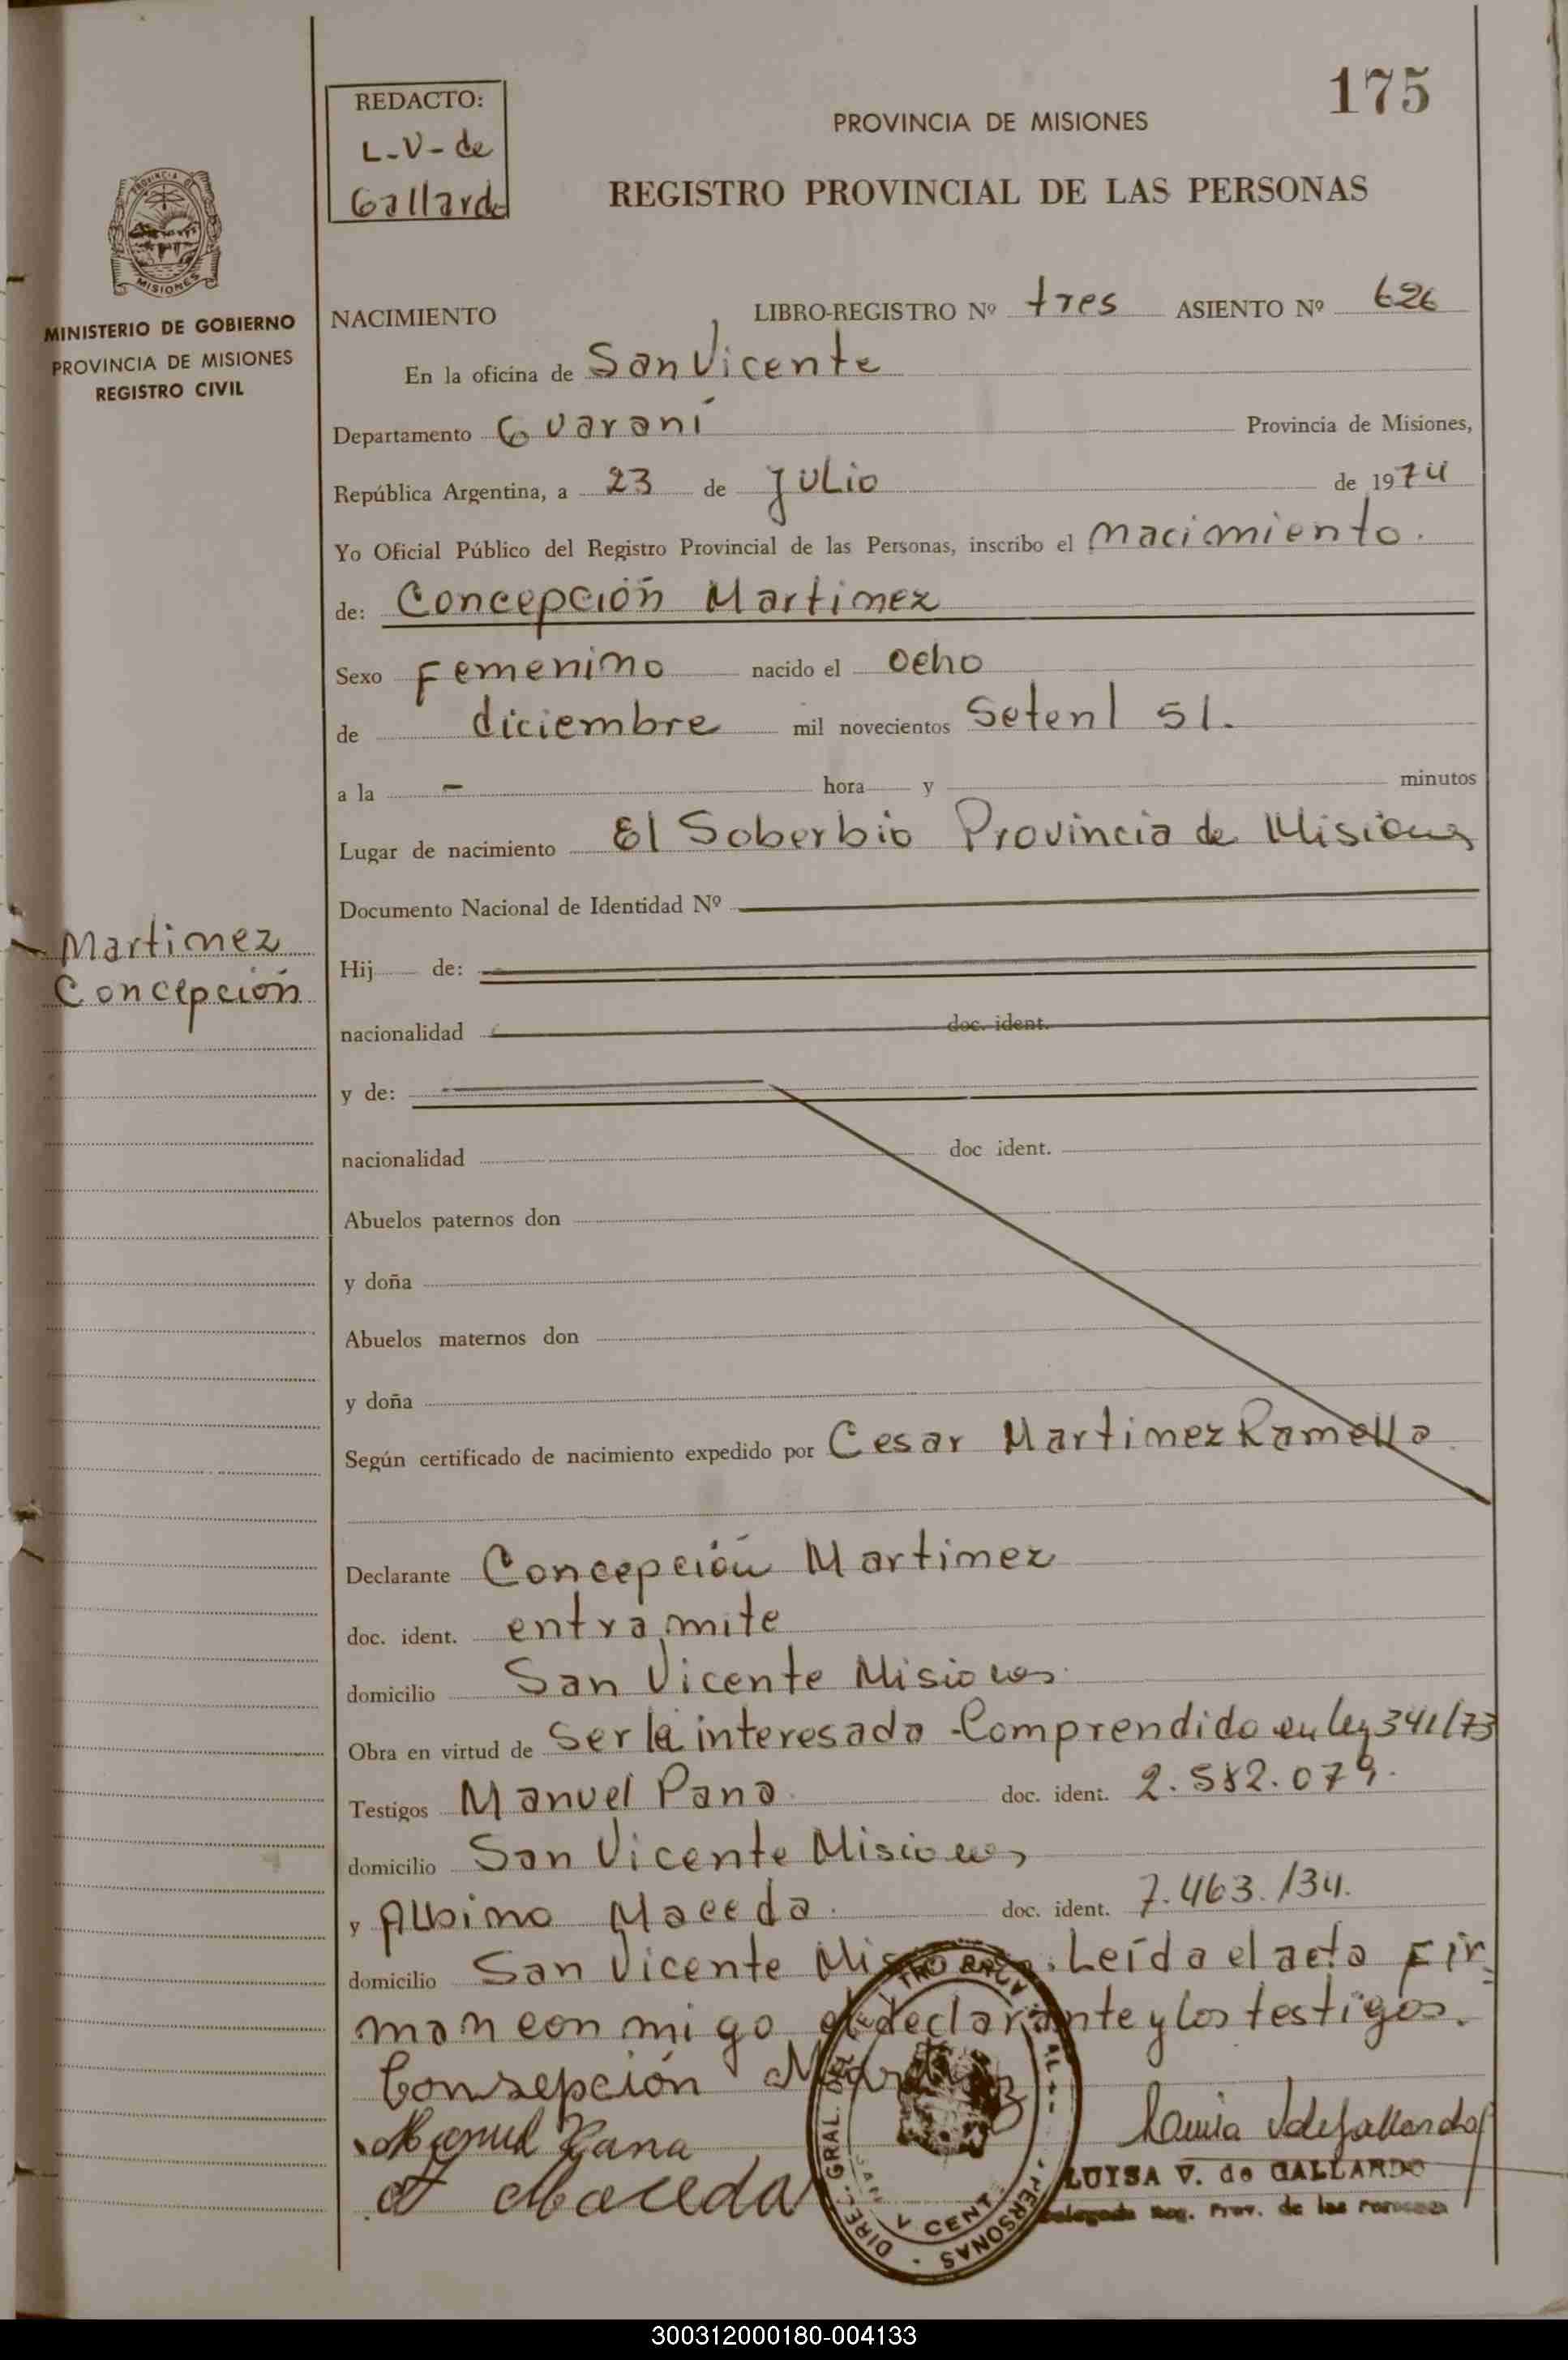 175
REDACTO:
L-V-de
Gallardo
PROVINCIA DE MISIONES
REGISTRO PROVINCIAL DE LAS PERSONAS
PROVINCIA DE
MISIONES
MINISTERIO DE GOBIERNO
PROVINCIA DE MISIONES
REGISTRO CIVIL
NACIMIENTO LIBRO-REGISTRO Nº tres ASIENTO Nº 626
En la oficina de San Vicente
Departamento Guaraní Provincia de Misiones,
República Argentina, a 23 de Julio de 1974
Yo Oficial Público del Registro Provincial de las Personas, inscribo el nacimiento.
de: Concepción Martinez
Sexo Femenino nacido el ocho
de diciembre mil novecientos
a la - hora y minutos
Lugar de nacimiento El Soberbio Provincia de Misiones
Documento Nacional de Identidad Nº
Martinez
Concepción
Hij de:
nacionalidad doc. ident.
y de:
nacionalidad doc ident.
Abuelos paternos don
y doña
Abuelos maternos don
y doña
Según certificado de nacimiento expedido por Cesar Martinez Ramella
Declarante Concepción Martinez
doc. ident. entramite
domicilio San Vicente Misiones
Obra en virtud de Ser la interesada - Comprendido en ley 341/73
Testigos Manuel Pana doc. ident. 2.582.079.
domicilio San Vicente Misiones
y Albino Maceda. doc. ident. 7.463.134.
domicilio San Vicente Misiones. Leída el acta Fir
man conmigo el declarante y los testigos.
Consepción Martinez
Manuel Pana
A Maceda
DIREC. GRAL. DEL
PERSONAS
LUISA V. de GALLARDO
Delegada Reg. Prov. de las Personas
300312000180-004133